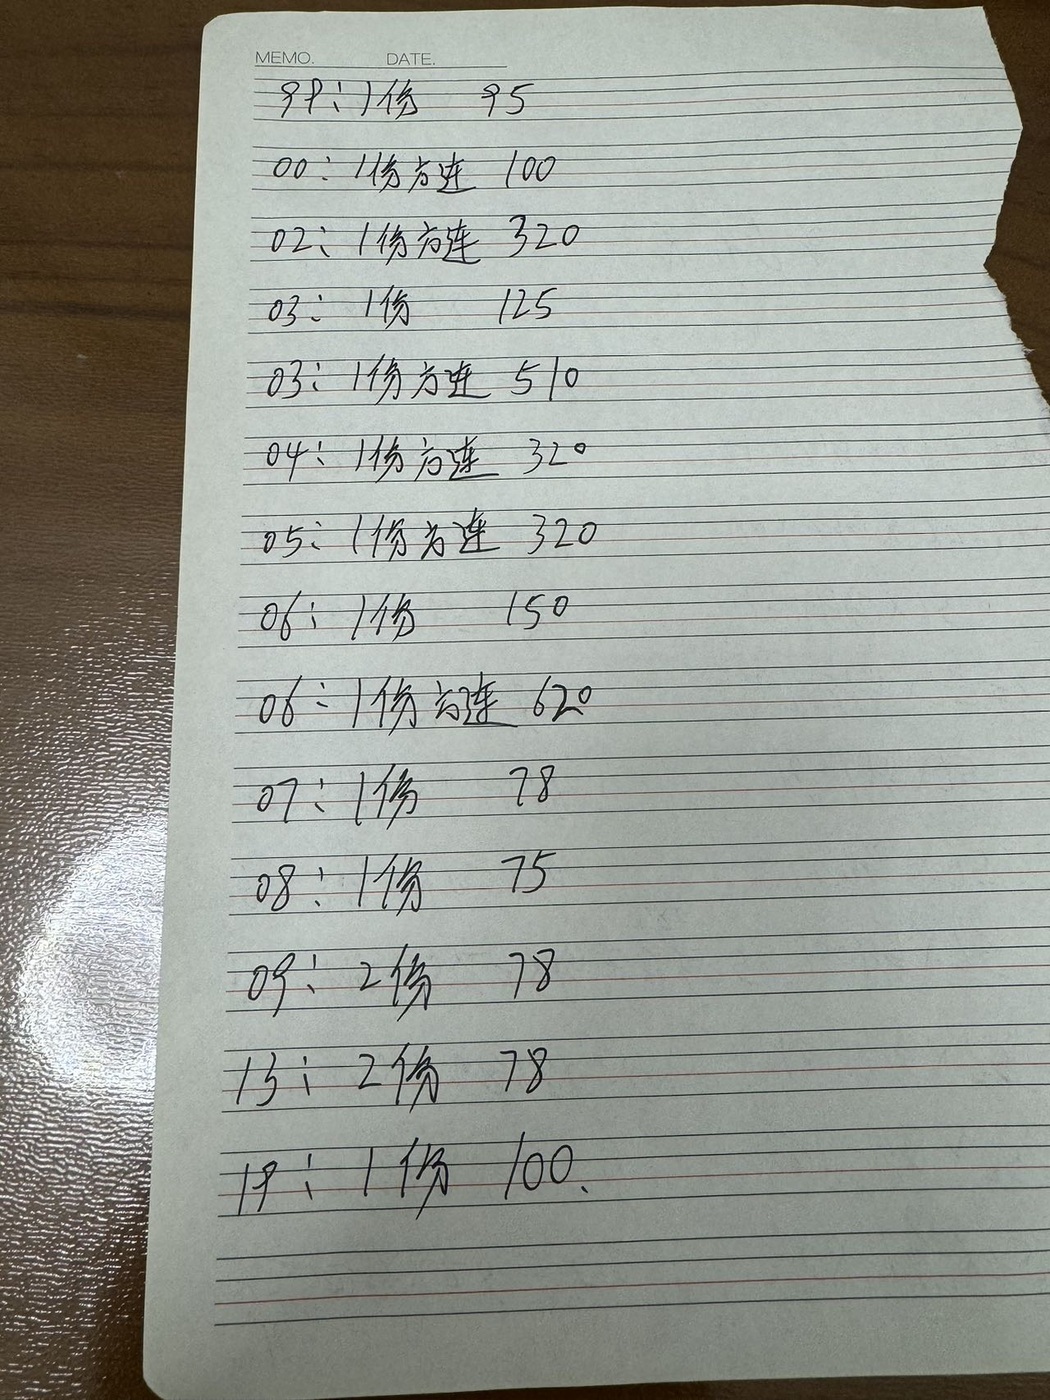 MEMO. DATE.
99：1份 95
00：1份方连 100
02：1份方连 320
03：1份 125
03：1份方连 510
04：1份方连 320
05：1份方连 320
06：1份 150
06：1份方连 620
07：1份 78
08：1份 75
09：2份 78
13：2份 78
19：1份 100、